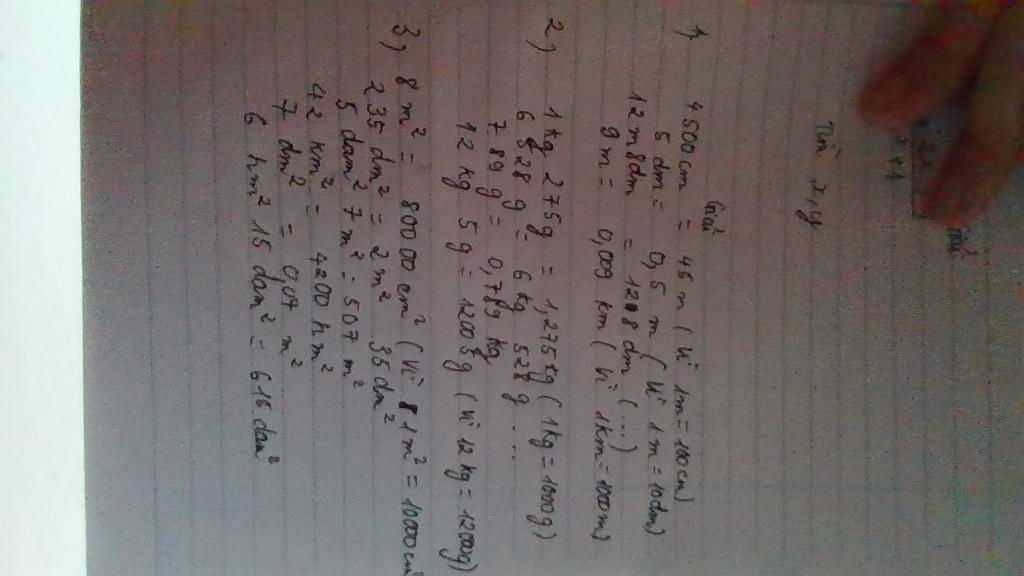 Tìm x, y
Giải
1, 4500cm = 45 m (Vì 1m = 100 cm)
5 dm = 0,5 m (Vì 1m = 10dm)
12 m 8dm = 128 dm (...)
9 m = 0,009 km (Vì 1km = 1000m)
2, 1 kg 275g = 1,275kg (1kg = 1000g)
6 528 g = 6 kg 528 g ...
789 g = 0,789 kg
12 kg 5 g = 12005g (Vì 12 kg = 12000g)
3, 8 m² = 80000 cm² (Vì 1m² = 10000cm²
235 dm² = 2 m² 35 dm²
5 dam² 7 m² = 507 m²
42 km² = 4200 hm²
7 dm² = 0,07 m²
6 hm² 15 dam² = 615 dam²